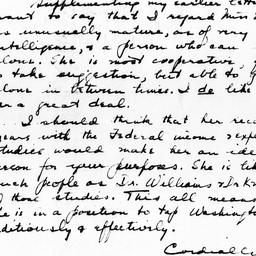 Supplementing my earlier letter
want to say that I regard Miss
is unusually mature, as of very
intelligence, & a person who can
alone. She is most cooperative,
to take suggestion, but able to
alone in between times. I do like
her a great deal.
I should think that her rec
years with the Federal income & exp
studies would make her an ide
person for your purposes. She is
such people as Dr. Williams & Dr. Kn
of those studies. This all means
she is in a position to tap Washingto
ditiously & effectively.
Cordially